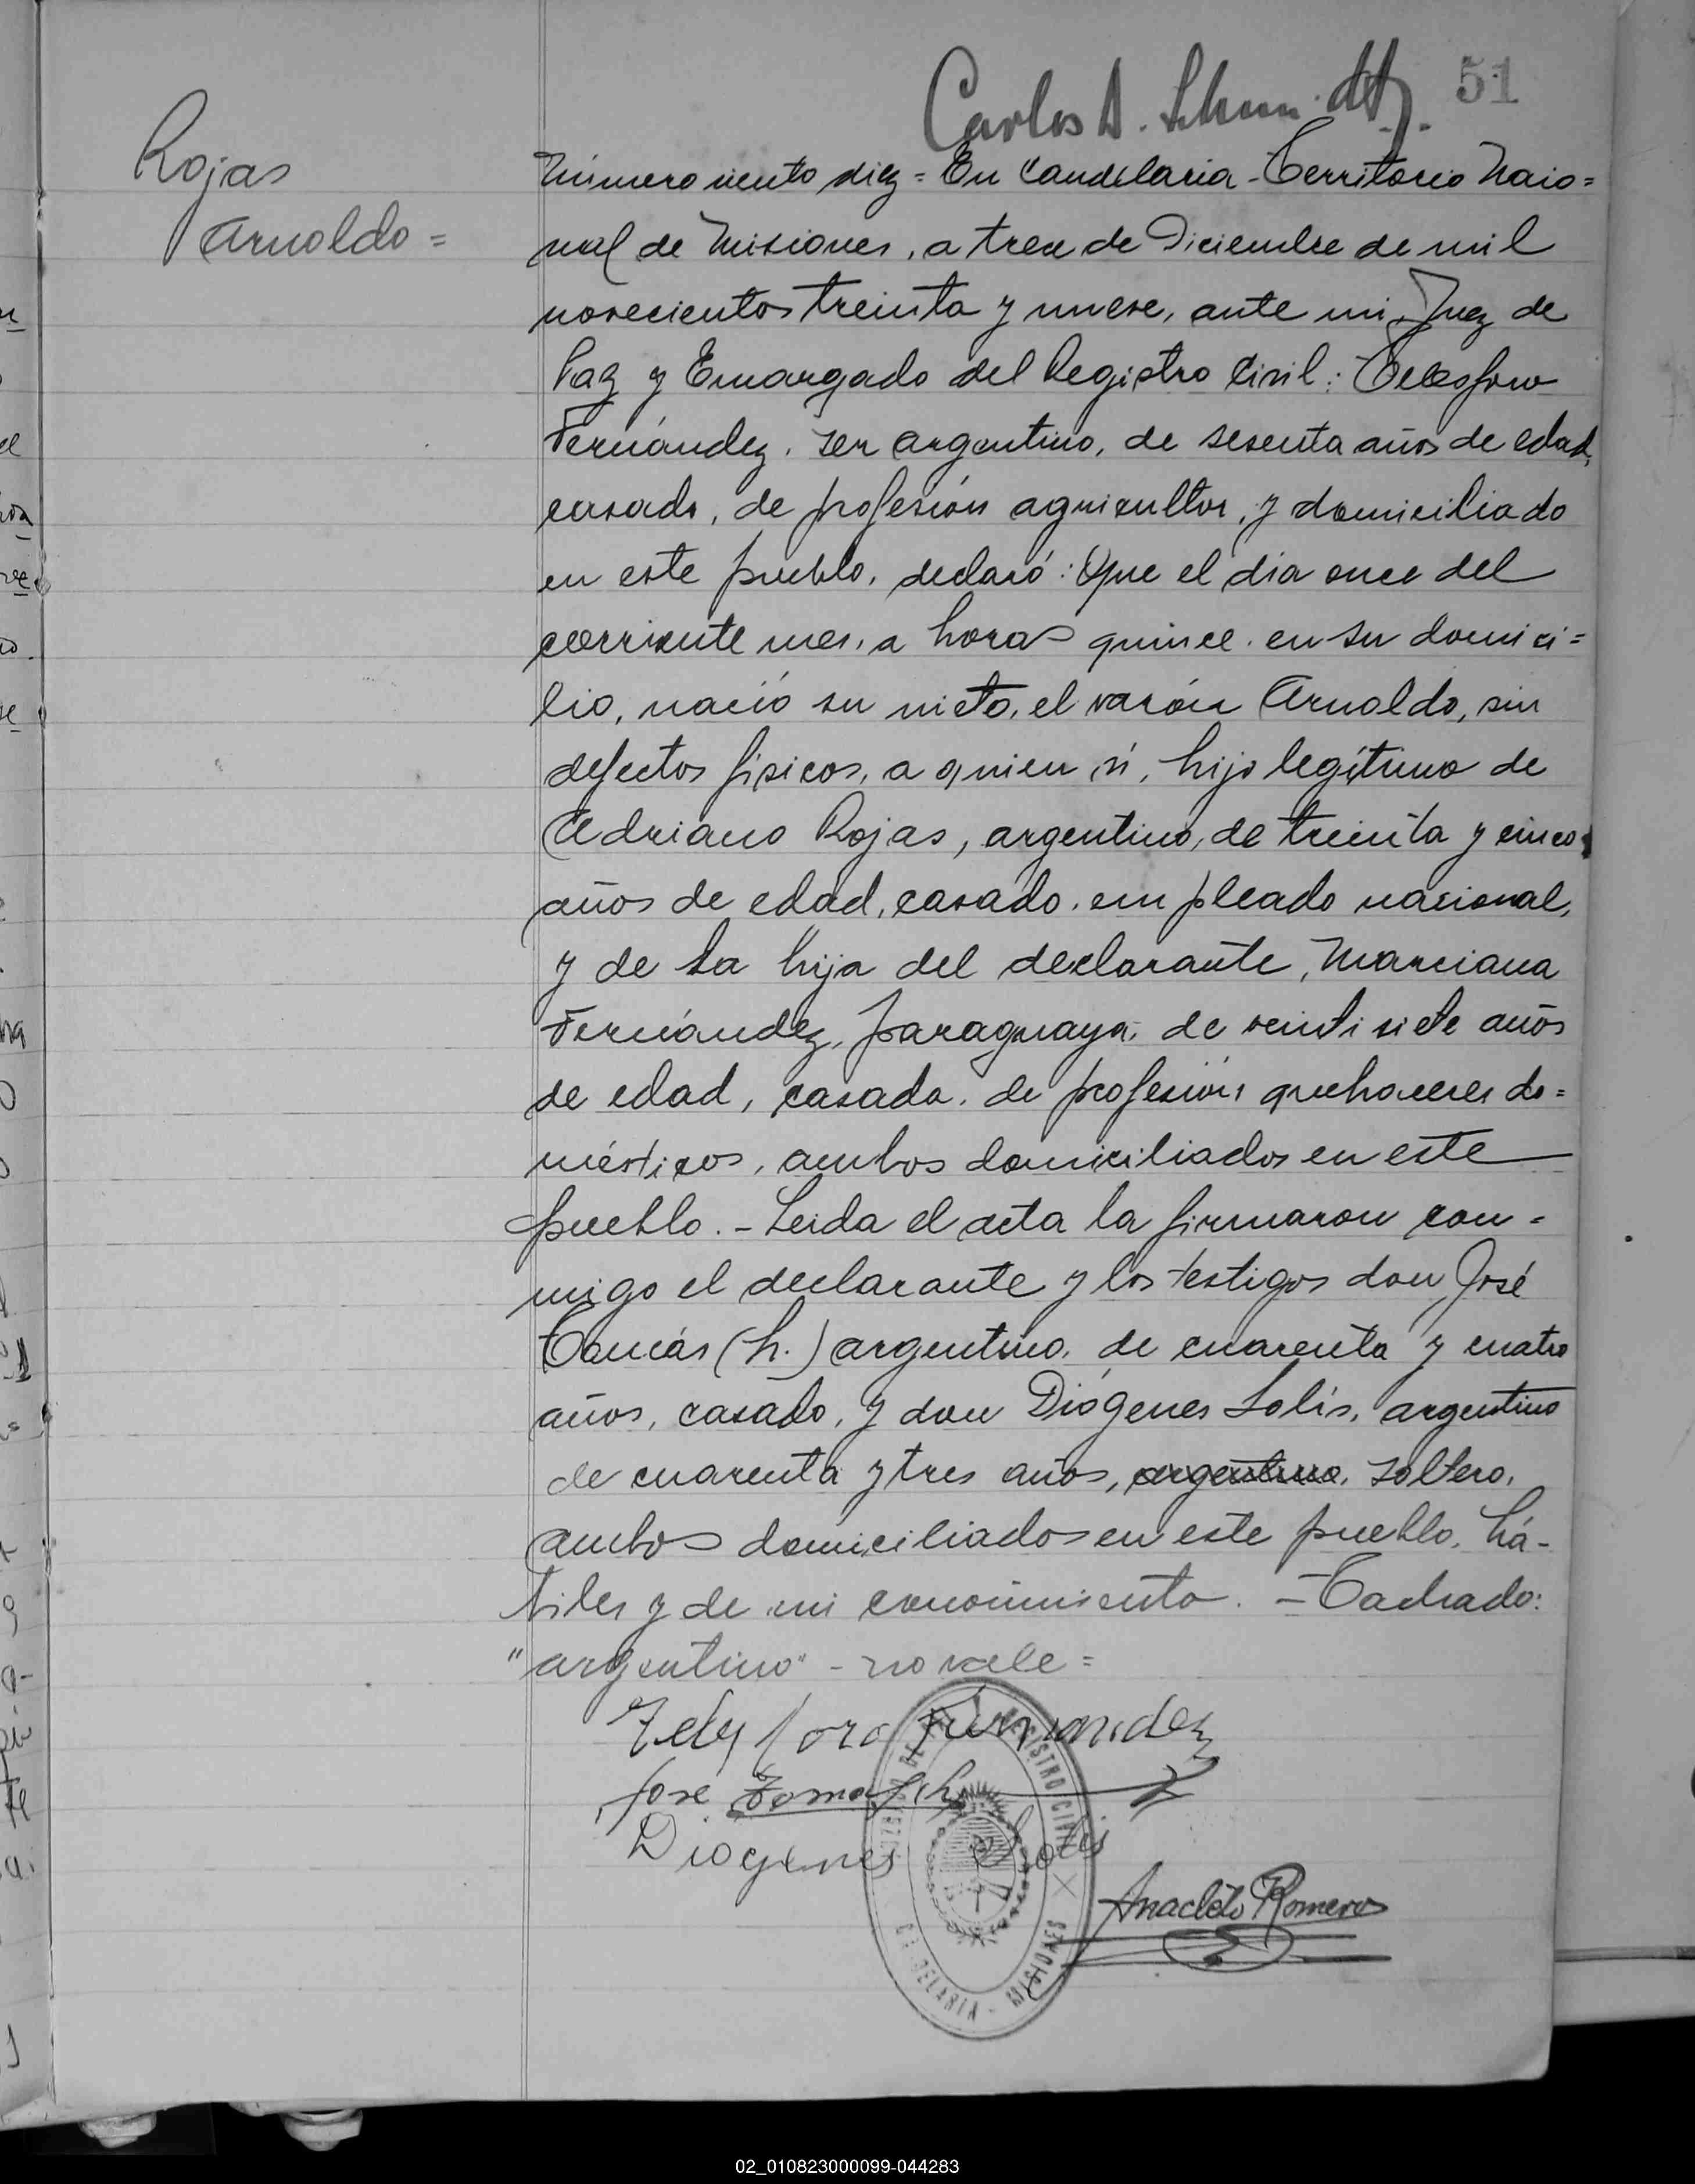 Carlos A. Schmidt. 51
Rojas
Arnoldo =
Número ciento diez = En Candelaria - Territorio Nacio=
nal de Misiones, a trece de Diciembre de mil
novecientos treinta y nueve, ante mi, Juez de
Paz y Encargado del Registro Civil: Telesforo
Fernández, ser argentino, de sesenta años de edad,
casado, de profesión agricultor, y domiciliado
en este pueblo, declaró: Que el día once del
corriente mes, a horas quince en su domici=
lio, nació su nieto, el varón Arnoldo, sin
defectos físicos, a quien ví, hijo legítimo de
Adriano Rojas, argentino, de treinta y cinco
años de edad, casado, empleado nacional,
y de la hija del declarante, Marciana
Fernández, paraguaya, de veintisiete años
de edad, casada, de profesión quehaceres do=
mésticos, ambos domiciliados en este
pueblo. - Leida el acta la firmaron con=
migo el declarante y los testigos don José
Tomás (h.) argentino, de cuarenta y cuatro
años, casado, y don Diógenes Solís, argentino
de cuarenta y tres años, argentino, soltero,
ambos domiciliados en este pueblo, há-
biles y de mi conocimiento. - Tachado:
"argentino" - no vale =
Telesforo Fernandez
José Tomas (h)
Diogenes Solis
REGISTRO CIVIL
CANDELARIA - MISIONES
Anacleto Romero
02_010823000099-044283